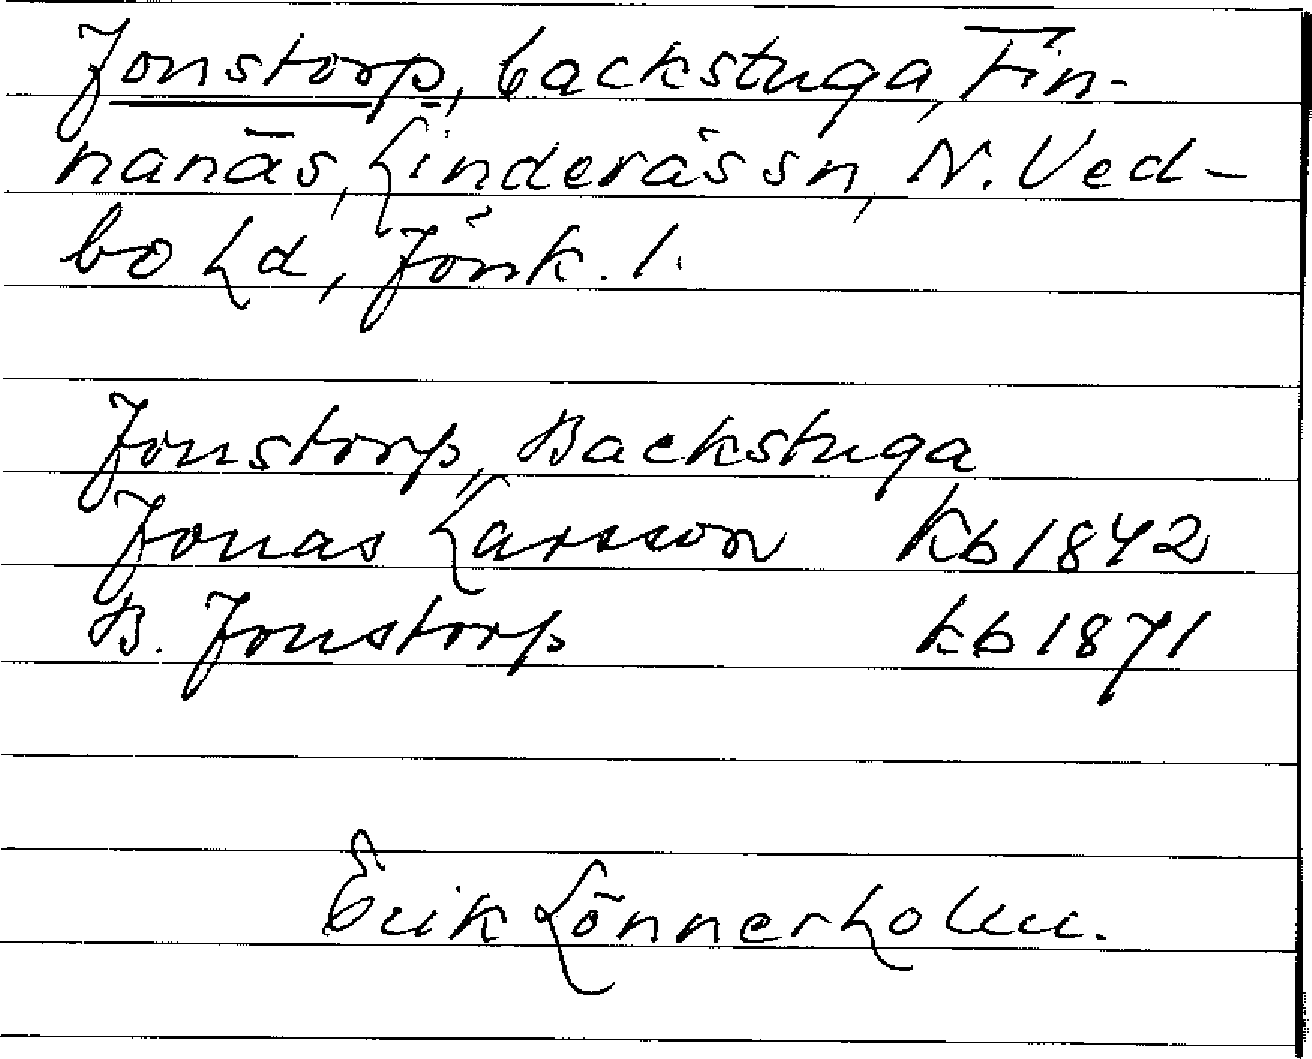 Jonstorp, backstuga, Fin-
nanäs, Linderås sn, N. Ved-
bo hd, Jönk. l.
Jonstorp, Backstuga
Jonas Larsson kb 1842
B. Jonstorp kb 1871
Erik Lönnerholm.